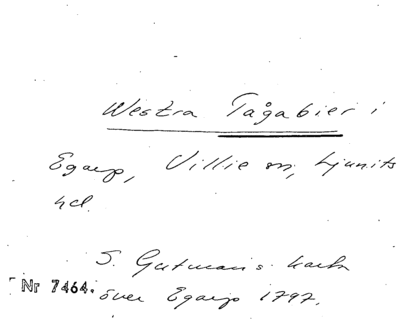 Westra Tågabier i
Egarp, Villie sn, Ljunits
hd.
S. Gutmans karta
Nr 7464. över Egarp 1797.